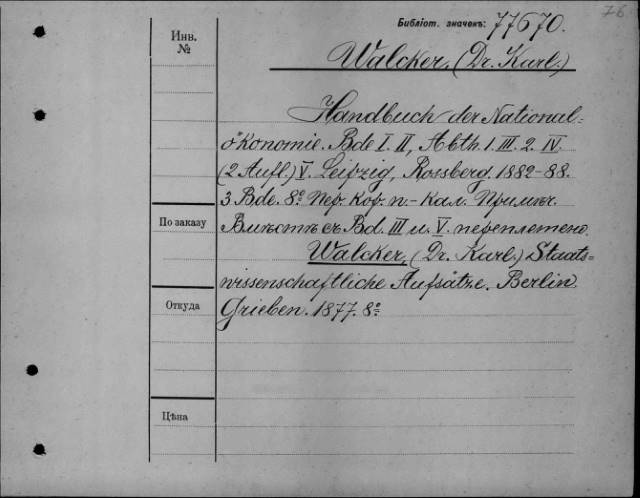 76
Библіот. значекъ: 77670.
Инв.
№
Walcker, (Dr. Karl.)
Handbuch der National-
ökonomie. Bde I. II, Abth. 1. III. 2. IV.
(2 Aufl.) V. Leipzig, Rossberg. 1882-88.
3 Bde. 8º Пер. кор. п-кал. Примѣч
По заказу
Вмѣстѣ съ Bd. III и V. переплетено
Walcker, (Dr. Karl.) Staats-
wissenschaftliche Aufsätze. Berlin
Откуда
Grieben. 1877. 8º
Цѣна